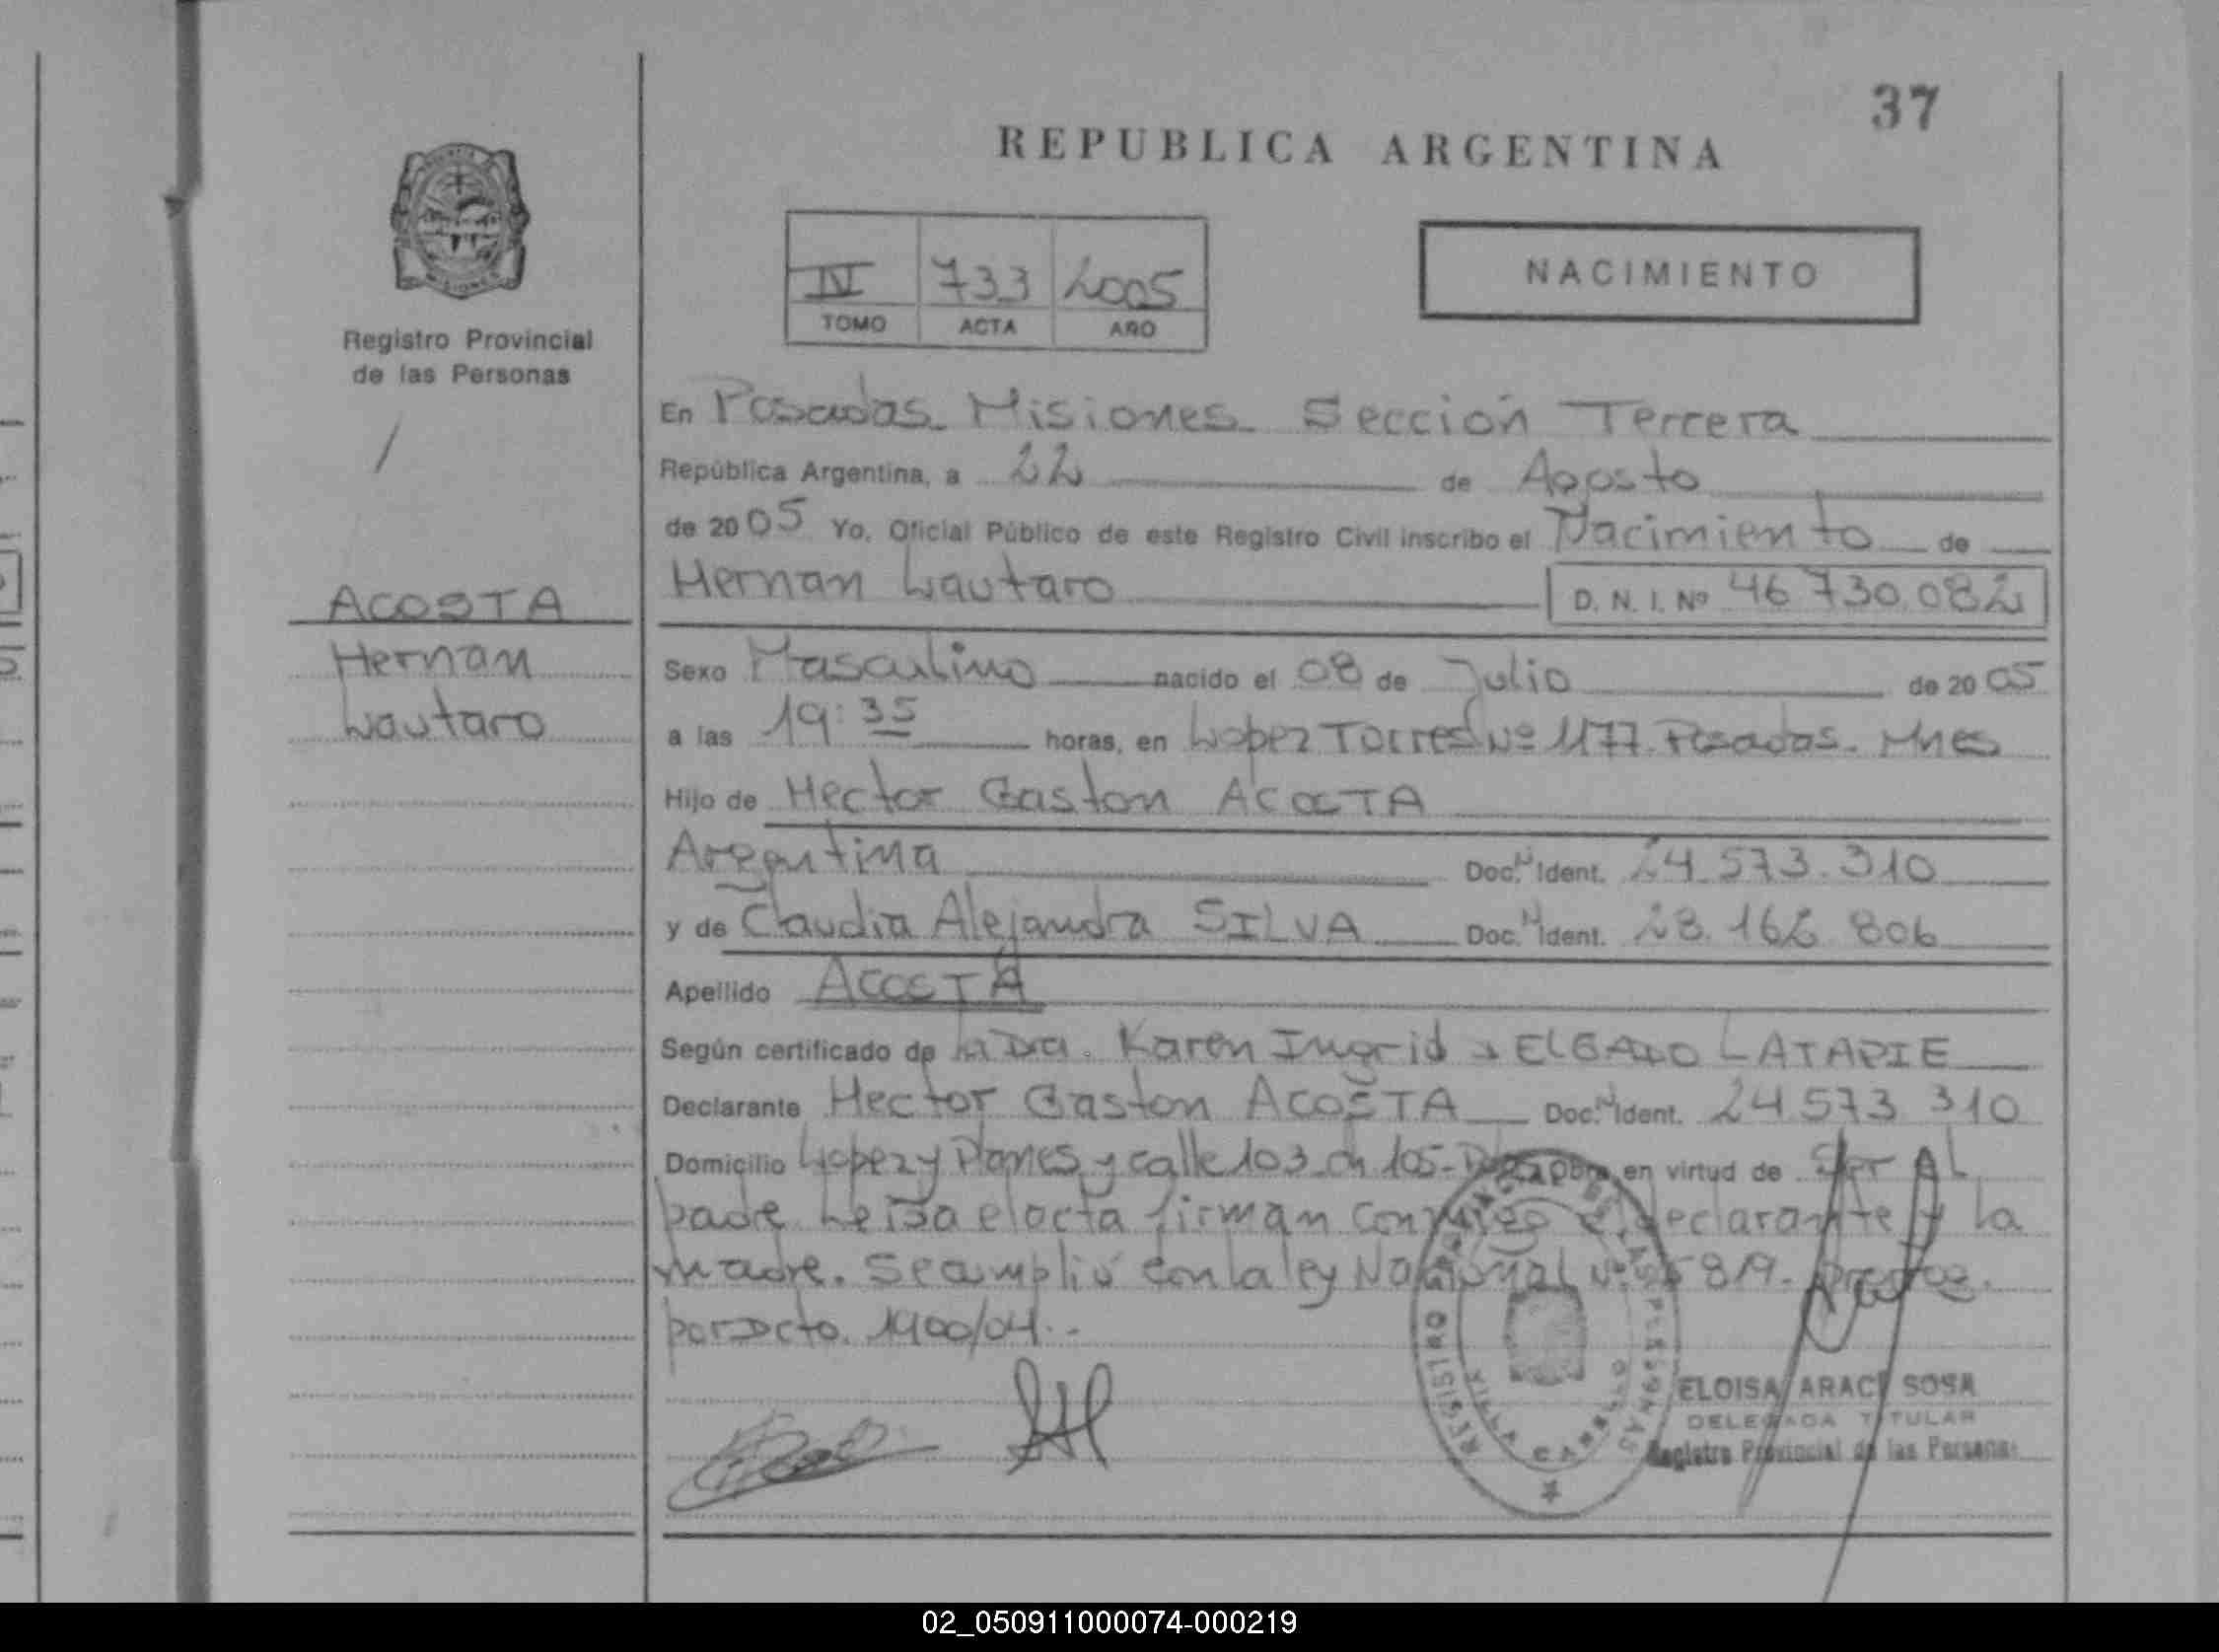 37
REPUBLICA ARGENTINA
IV 733 2005
TOMO ACTA AÑO
NACIMIENTO
Registro Provincial
de las Personas
ACOSTA
Hernan
Lautaro
En Posadas Misiones Sección Tercera
República Argentina, a 22 de Agosto
de 2005 Yo, Oficial Público de este Registro Civil inscribo el Nacimiento de
Hernan Lautaro D. N. I. Nº 46 730.082
Sexo Masculino nacido el 08 de Julio de 2005
a las 19:35 horas, en Lopez Torres Nº 1177 Posadas. Mnes
Hijo de Hector Gaston ACOSTA
Argentina Doc. N Ident. 24.573.310
y de Claudia Alejandra SILVA Doc. N Ident. 28.162 806
Apellido ACOSTA
Según certificado de la Dra. Karen Ingrid DELGADO LATAPIE
Declarante Hector Gaston ACOSTA Doc. N Ident. 24.573 310
Domicilio Lopez y Planes y calle 103 ch 105- Obra en virtud de Ser AL
padre Leida el acta firman conmigo el declarante y la
madre. Se amplió con la ley Nacional Nº 25 819.
por Dcto. 1900/04.-
REGISTRO DE LAS PERSONAS
VILLA CABELLO
ELOISA ARACI SOSA
DELEGADA TITULAR
Registro Provincial de las Personas
02_050911000074-000219